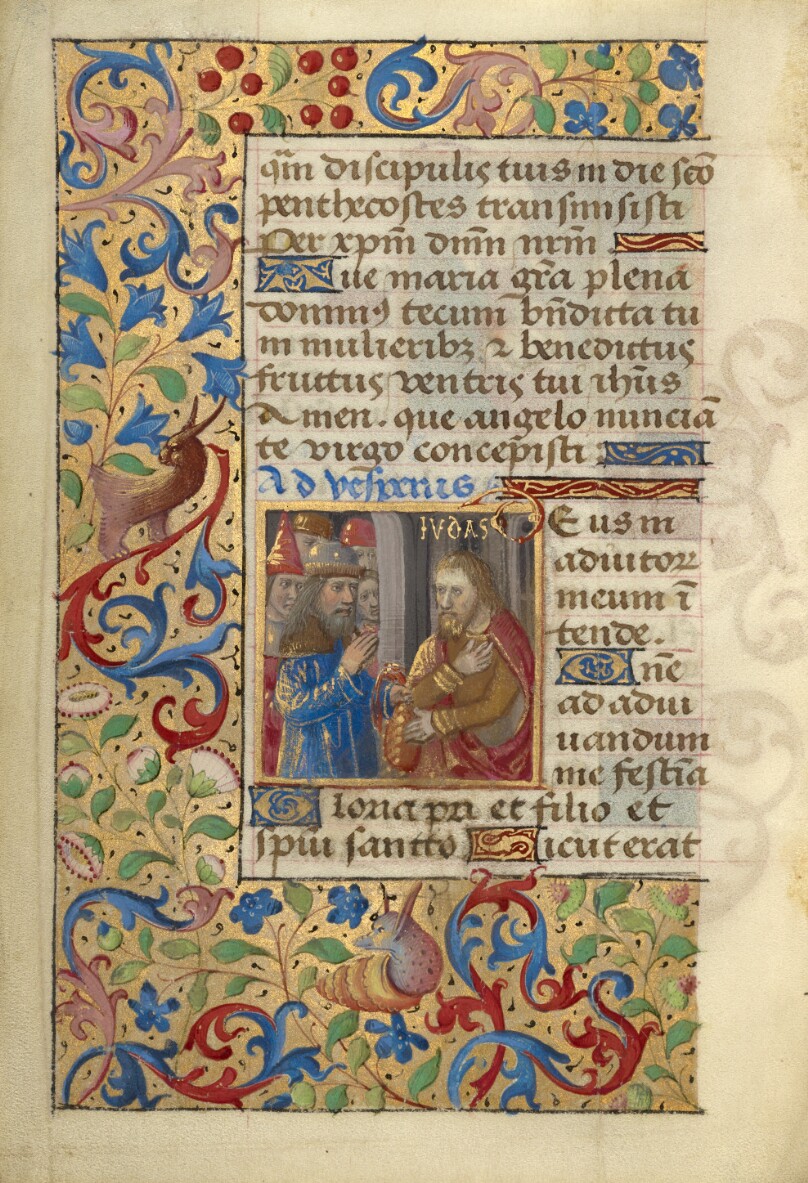 qm̄ discipulis tuis in die sc̄o
penthecostes transmisisti
Per xp̄m dn̄m nr̄m
Aue maria gr̄a plena
dominꝰ tecum bn̄dicta tu
in mulieribꝫ ⁊ benedictus
fructus ventris tui ih̄us
Amen. que angelo nunciā
te virgo concep̄isti
Ad vesperas
IVDAS
Deus in
adiutoꝛꝛ
meum ī
tende.
Dn̄e
ad adiu
uandum
me festīa
Gloria pr̄i et filio et
sp̄ui sancto Sicut erat